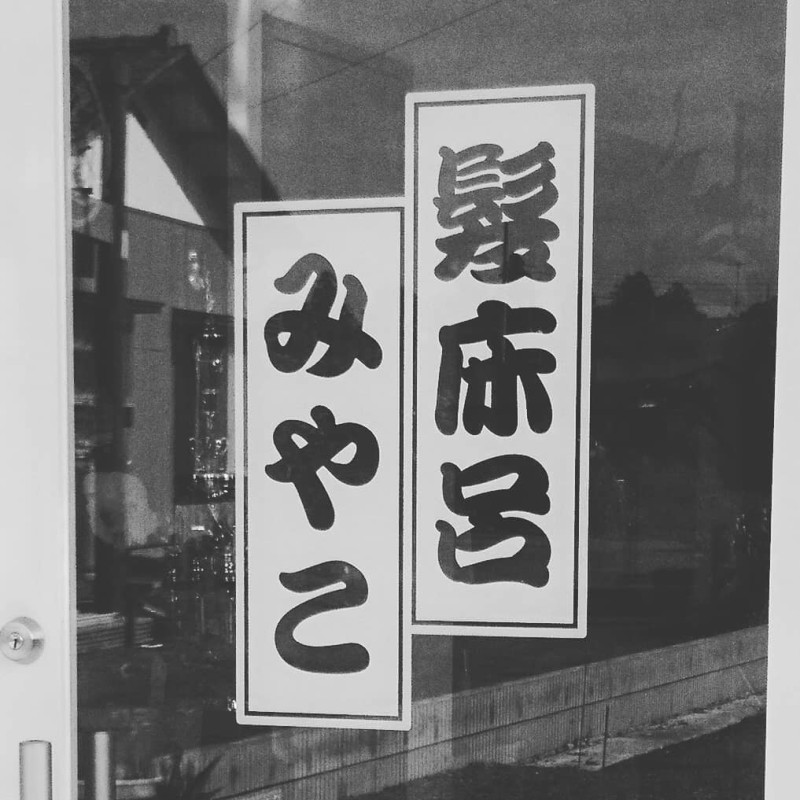 髪床呂
みやこ